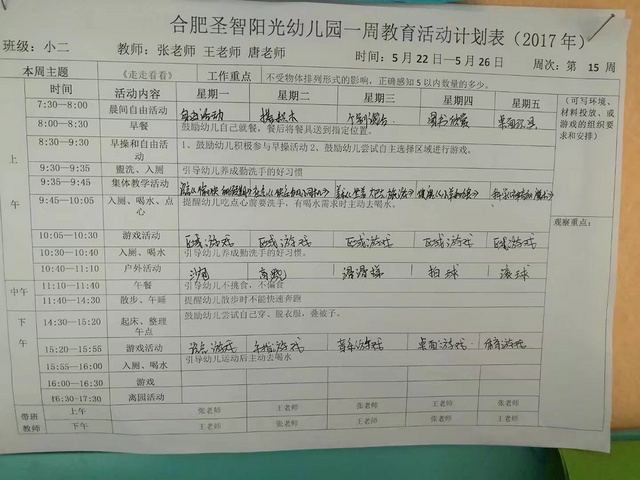 合肥圣智阳光幼儿园一周教育活动计划表（2017年）
班级：小二 教师：张老师 王老师 唐老师 时间：5月22日—5月26日 周次：第 15 周
本周主题 《走走看看》 工作重点 不受物体排列形式的影响，正确感知5以内数量的多少。
时间 活动内容 星期一 星期二 星期三 星期四 星期五 （可写环境、材料投放、或游戏的组织要求和安排）
上午
7:30—8:00 晨间自由活动 自由活动 搭积木 个别谈话 图书欣赏 桌面玩具
8:00—8:30 早餐 鼓励幼儿自己就餐，餐后将餐具送到指定位置。
8:30—9:30 早操和自由活动 1、鼓励幼儿积极参与早操活动 2、鼓励幼儿尝试自主选择区域进行游戏。
9:30—9:35 盥洗、入厕 引导幼儿养成勤洗手的好习惯
9:35—9:45 集体教学活动
9:45—10:05 入厕、喝水、点心 提醒幼儿吃点心前要洗手，有喝水需求时主动去喝水。
观察重点：
10:05—10:30 游戏活动 区域游戏 区域游戏 区域游戏 区域游戏 区域游戏
10:30—10:40 入厕、喝水 引导幼儿养成勤洗手的好习惯。
10:40—11:10 户外活动 沙包 滑滑梯 拍球 滚球
中午
11:10—11:40 午餐 引导幼儿不挑食，不偏食
11:40—14:30 散步、午睡 提醒幼儿散步时不能快速奔跑
下午
14:30—15:20 起床、整理午点 鼓励幼儿尝试自己穿、脱衣服，叠被子。
15:20—15:55 游戏活动 语言游戏 手指游戏 音乐游戏 桌面游戏 体育游戏
15:55—16:00 入厕、喝水 引导幼儿运动后主动去喝水
16:00—16:30 游戏
16:30-17:30 离园活动
带班教师 上午 张老师 王老师 张老师 王老师 张老师
下午 王老师 张老师 王老师 张老师 王老师